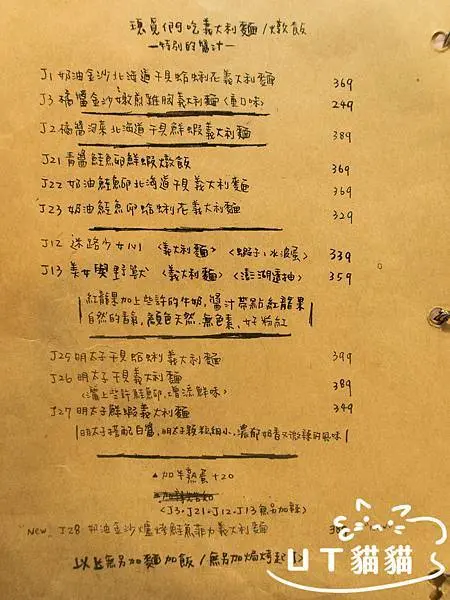 現員們吃義大利麵/燉飯
—特別的醬汁—
J1 奶油金沙北海道干貝蛤蜊花義大利麵 369
J3 橘醬金沙嫩煎雞胸義大利麵〈重口味〉 249
J2 橘醬泡菜北海道干貝鮮蝦義大利麵 389
J21 青醬鮭魚卵鮮蝦燉飯 369
J22 奶油鮭魚卵北海道干貝義大利麵 369
J23 奶油鮭魚卵蛤蜊花義大利麵 329
J12 迷路少女心〈義大利麵〉〈蝦子,水波蛋〉 339
J13 美女與野獸〈義大利麵〉〈澎湖 抽〉 359
紅龍果加上些許的牛奶,醬汁帶點紅龍果
自然的香氣,顏色天然,無色素,好粉紅
J25 明太子干貝蛤蜊義大利麵 399
J26 明太子干貝義大利麵 389
〈灑上些許鮭魚卵,增添鮮味〉
J27 明太子鮮蝦義大利麵 349
明太子搭配白醬,明太子顆粒細小,濃郁奶香又微辣的風味
▲加半熟蛋+20
〈J3.J21.J12.J13無另加麵〉
New. J28 奶油金沙爐烤鮭魚菲力義大利麵
以上無另加麵加飯/無另加焗烤起
UT貓貓